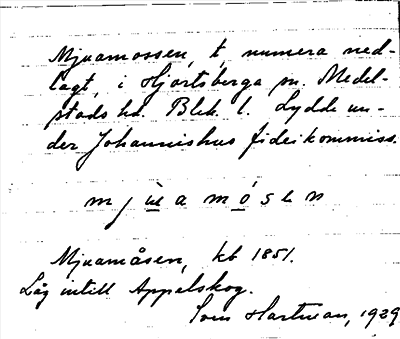 Mjuamossen, t, numera ned-
lagt, i Hjortsberga sn. Medel-
stads hd. Blek. l. Lydde un-
der Johannishus fideikommiss.
m j ù a m ó s e n
Mjuamåsen, kb 1851.
Låg intill Appelskog.
Sven Hartman, 1929